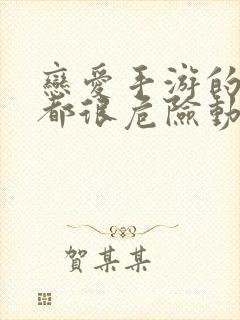 戀愛手游的
都很危險動
賀某某